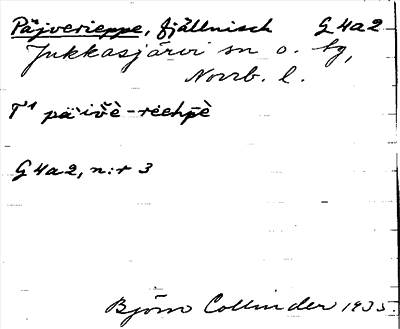 Päjverieppe, fjällnisch G4a2
Jukkasjärvi sn o. tg,
Norrb. l.
T¹ päivè-rìehpè
G4a2, n:r 3
Björn Collinder 1935.